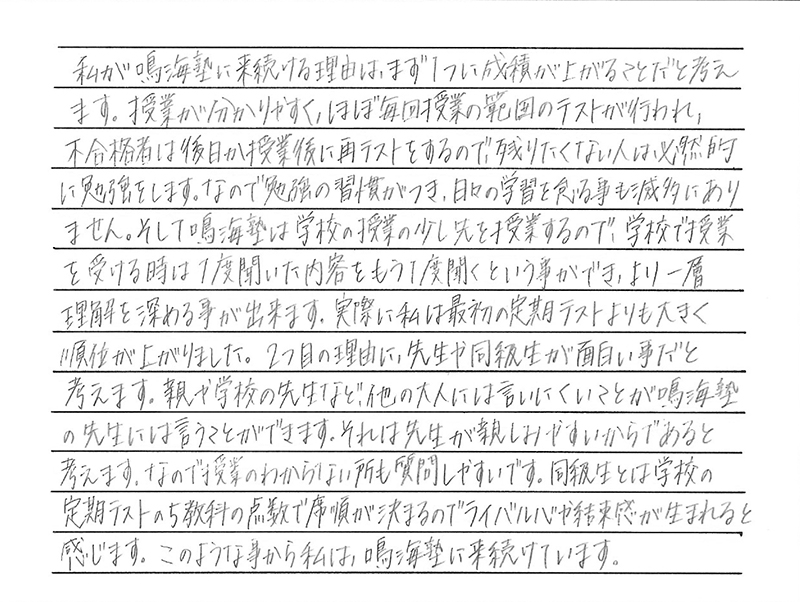 私が鳴海塾に来続ける理由は、まず1つに成績が上がることだと考え
ます。授業が分かりやすく、ほぼ毎回授業の範囲のテストが行われ、
不合格者は後日か授業後に再テストをするので、残りたくない人は必然的
に勉強をします。なので勉強の習慣がつき、日々の学習を怠る事も滅多にあり
ません。そして鳴海塾は学校の授業の少し先を授業するので、学校で授業
を受ける時は1度聞いた内容をもう1度聞くという事ができ、より一層
理解を深める事が出来ます。実際に私は最初の定期テストよりも大きく
順位が上がりました。2つ目の理由に、先生や同級生が面白い事だと
考えます。親や学校の先生など、他の大人には言いにくいことが鳴海塾
の先生には言うことができます。それは先生が親しみやすいからであると
考えます。なので授業のわからない所も質問しやすいです。同級生とは学校の
定期テストの5教科の点数で席順が決まるのでライバル心や結束感が生まれると
感じます。このような事から私は、鳴海塾に来続けています。